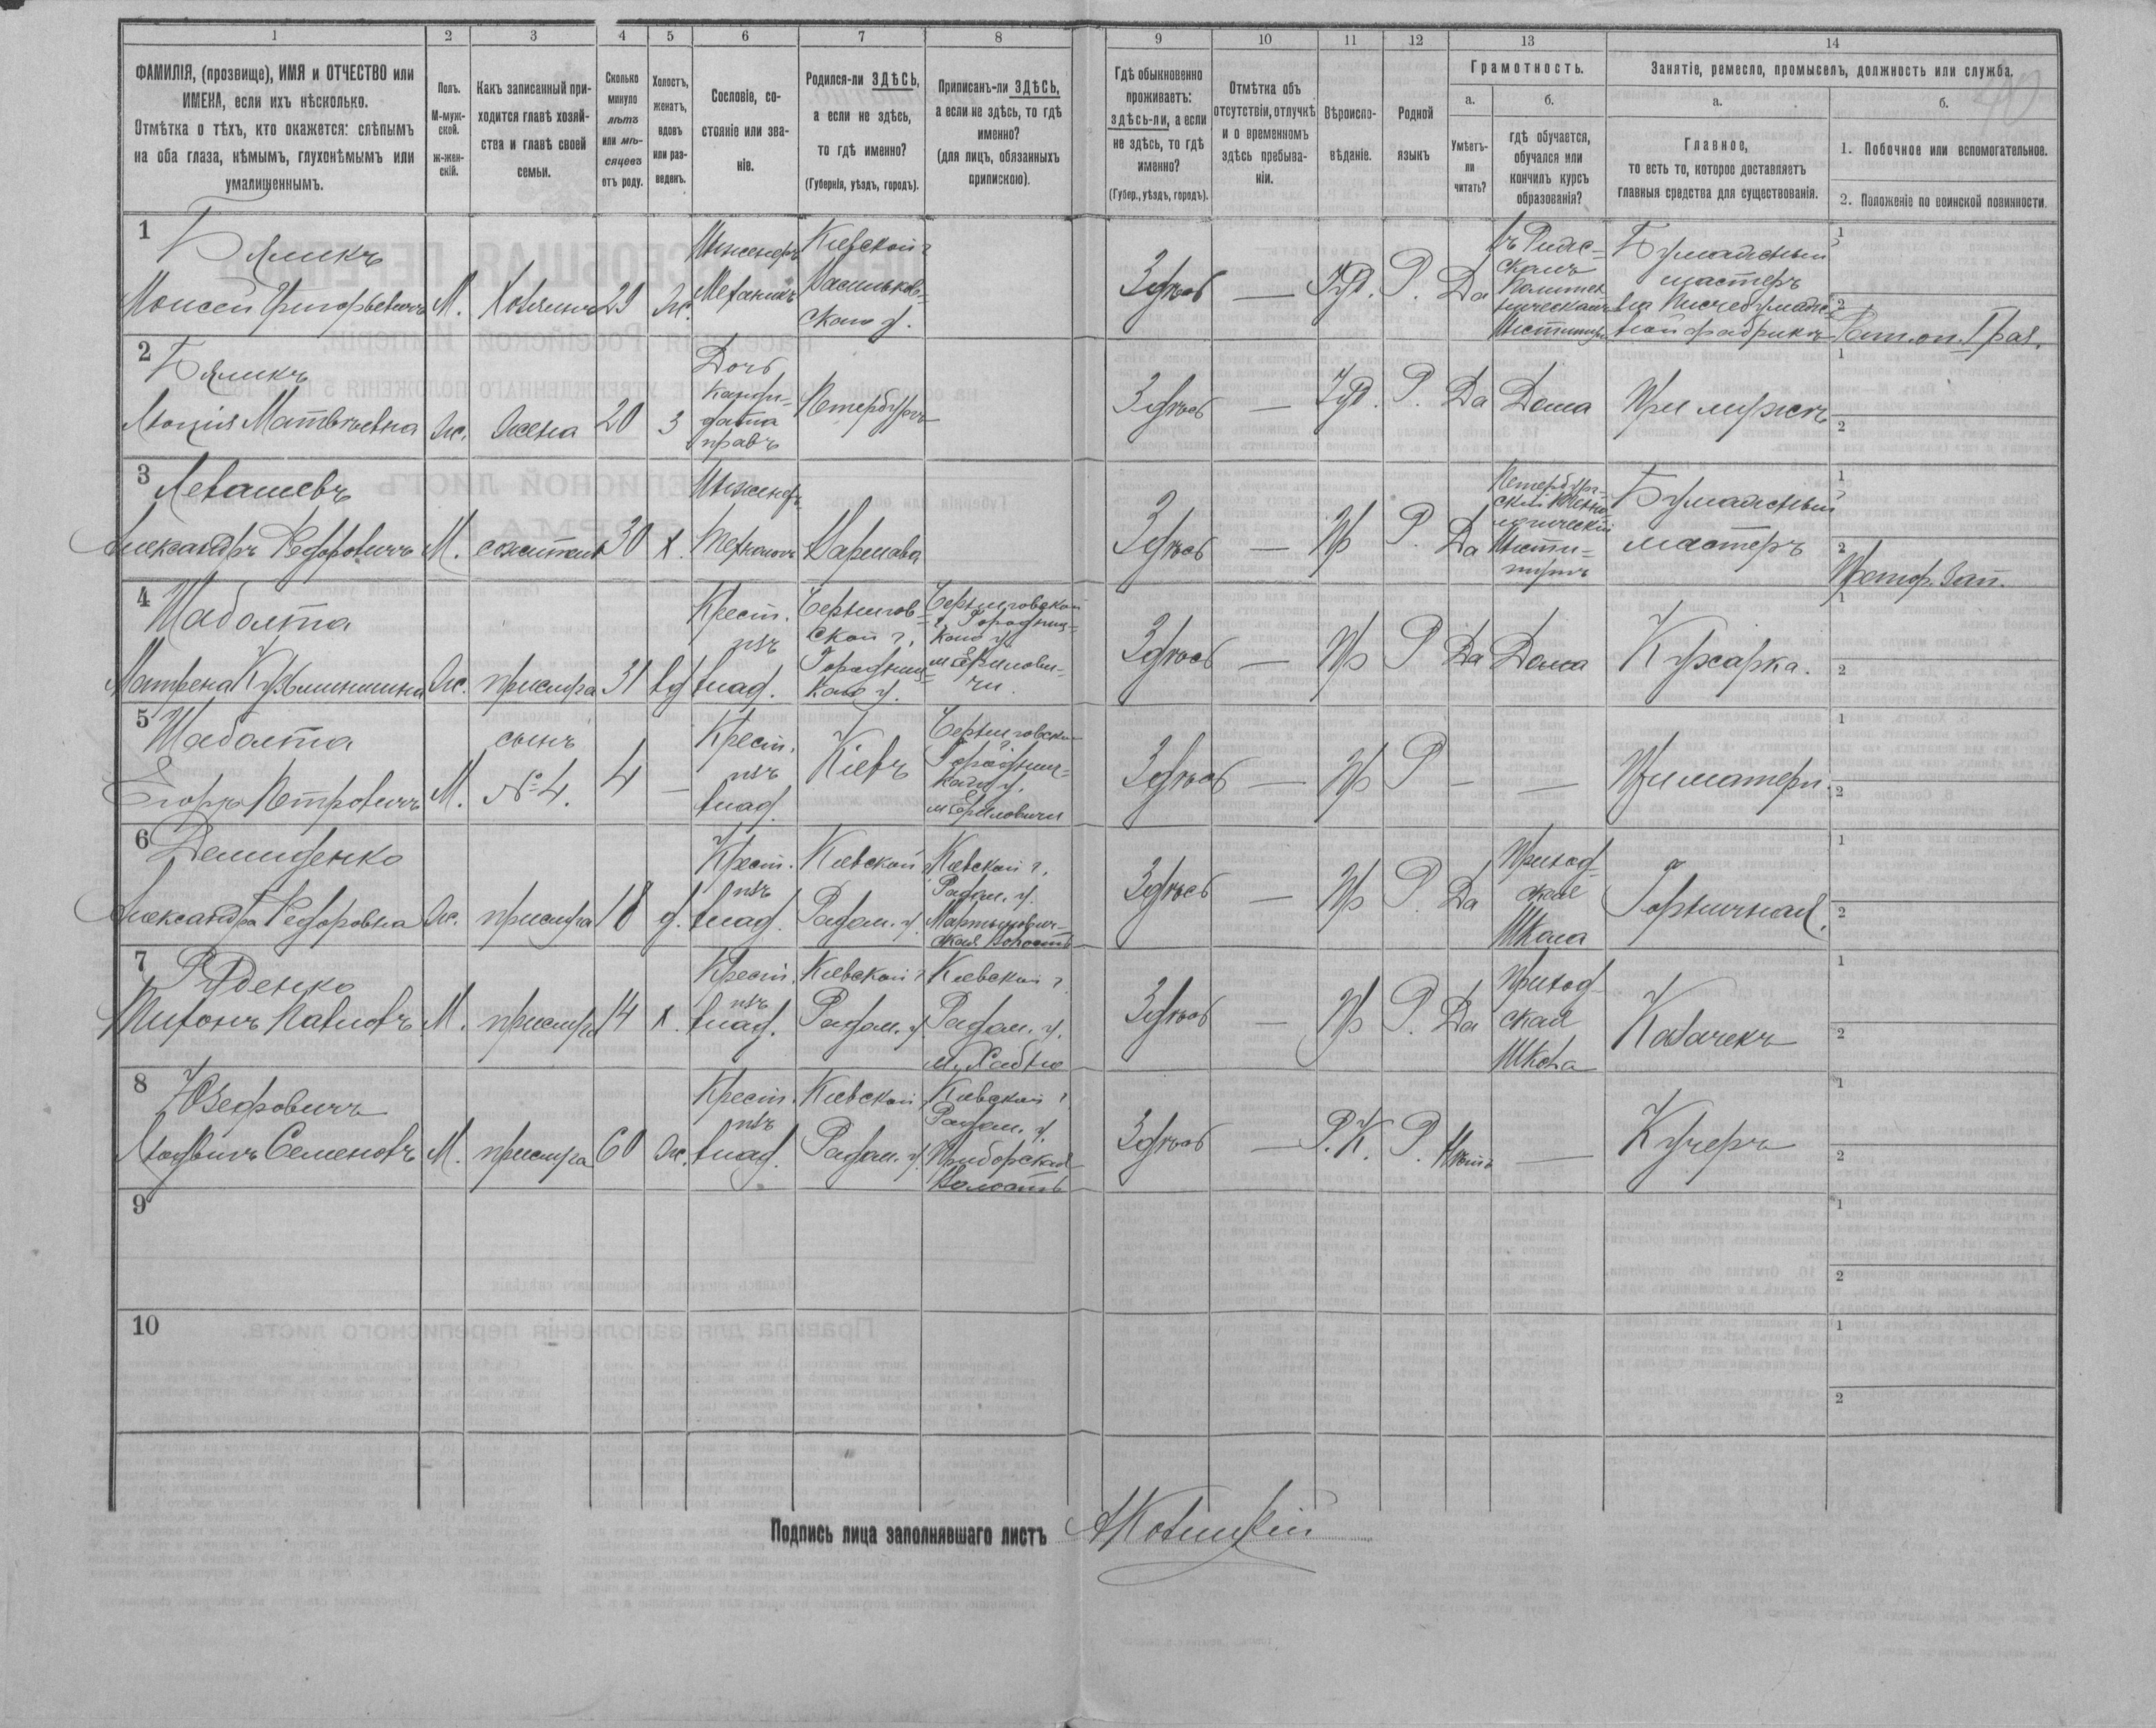 1 2 3 4 5 6 7 8 9 10 11 12 13 14
ФАМИЛІЯ, (прозвище), ИМЯ и ОТЧЕСТВО или
ИМЕНА, если ихъ нѣсколько.
Отмѣтка о тѣхъ, кто окажется: слѣпымъ
на оба глаза, нѣмымъ, глухонѣмымъ или
умалишеннымъ.
Полъ.
М-муж-
ской.
ж-жен-
скій.
Какъ записанный при-
ходится главѣ хозяй-
ства и главѣ своей
семьи.
Сколько
минуло
лѣтъ
или мѣ-
сяцевъ
отъ роду.
Холостъ,
женатъ,
вдовъ
или раз-
веденъ.
Сословіе, со-
стояніе или зва-
ніе.
Родился-ли ЗДѢСЬ,
а если не здѣсь,
то гдѣ именно?
(Губернія, уѣздъ, городъ).
Приписанъ-ли ЗДѢСЬ,
а если не здѣсь, то гдѣ
именно?
(для лицъ, обязанныхъ
припискою).
Гдѣ обыкновенно
проживаетъ:
здѣсь-ли, а если
не здѣсь, то гдѣ
именно?
(Губер., уѣздъ, городъ).
Отмѣтка объ
отсутствіи, отлучкѣ
и о временномъ
здѣсь пребыва-
ніи.
Вѣроиспо-
вѣданіе.
Родной
языкъ
Грамотность.
а.
Умѣетъ-
ли
читать?
б.
гдѣ обучается,
обучался или
кончилъ курсъ
образованія?
Занятіе, ремесло, промыселъ, должность или служба.
а.
Главное,
то есть то, которое доставляетъ
главныя средства для существованія.
б.
1. Побочное или вспомогательное.
2. Положеніе по воинской повинности.
1
Бяликъ
Моисей Григорьевичъ
М.
Хозяинъ
29
Ж.
Инженеръ
Механикъ
Кіевской г.
Васильков-
скаго у.
Здѣсь
—
Іуд.
Р.
Да
въ Риж-
скомъ
Политех
ническомъ
Бумажный
мастеръ
на Писчебумаж-
ной фабрикѣ
1
2
2
Бяликъ
Матвѣевна
Ж.
Жена
20
З
Дочь
Канди-
дата
правъ
Петербургъ
Здѣсь
—
Іуд.
Р.
Да
Дома
При мужѣ
1
2
3
Левашевъ
Александръ Федоровичъ
М.
сожитель
30
х.
Инженеръ
Технологъ
Варшава
Здѣсь
—
Пр
Р.
Да
Петербург-
скій Техно-
логическій
Инсти-
тутъ
Бумажный
мастеръ
1
2
4
Шаболта
Ж.
прислуга
31
вд
Крест.
изъ
влад.
Чернигов-
ской г.
Городниц-
каго у.
Черниговской
г. Городниц-
каго у.
Здѣсь
—
Пр
Р
Да
Дома
Кухарка.
1
2
5
Шаболта
Егоръ Петровичъ
М.
сынъ
№ 4.
4
—
Крест.
изъ
влад.
Кіевъ
Городниц-
каго у.
Здѣсь
—
Пр
Р
—
—
При матери.
1
2
6
Демиденко
Александра Федоровна
Ж.
прислуга
18
д.
Крест.
изъ
влад.
Кіевской г.
Радом. у.
Кіевской г.
Радом. у.
Мартынович-
ская волость
Здѣсь
—
Пр
Р.
Да
Приход-
ская
Школа
Горничная.
1
2
7
Руденко
Тихонъ Павловъ
М.
прислуга
14
х.
Крест.
изъ
влад.
Кіевской г.
Радом. у.
Кіевской г.
Радом. у.
м. Хабно
Здѣсь
—
Пр
Р.
Да
Приход-
ская
Школа
Казачекъ
1
2
8
Юзефовичъ
Людвигъ Семеновъ
М.
прислуга
60
Ж.
Крест.
изъ
влад.
Кіевской
Радом. у.
Кіевской г.
Радом. у.
Приборская
волость
Здѣсь
—
Р.К.
Р.
Нѣтъ
—
Кучеръ
1
2
9
1
2
10
1
2
Подпись лица заполнявшаго листъ